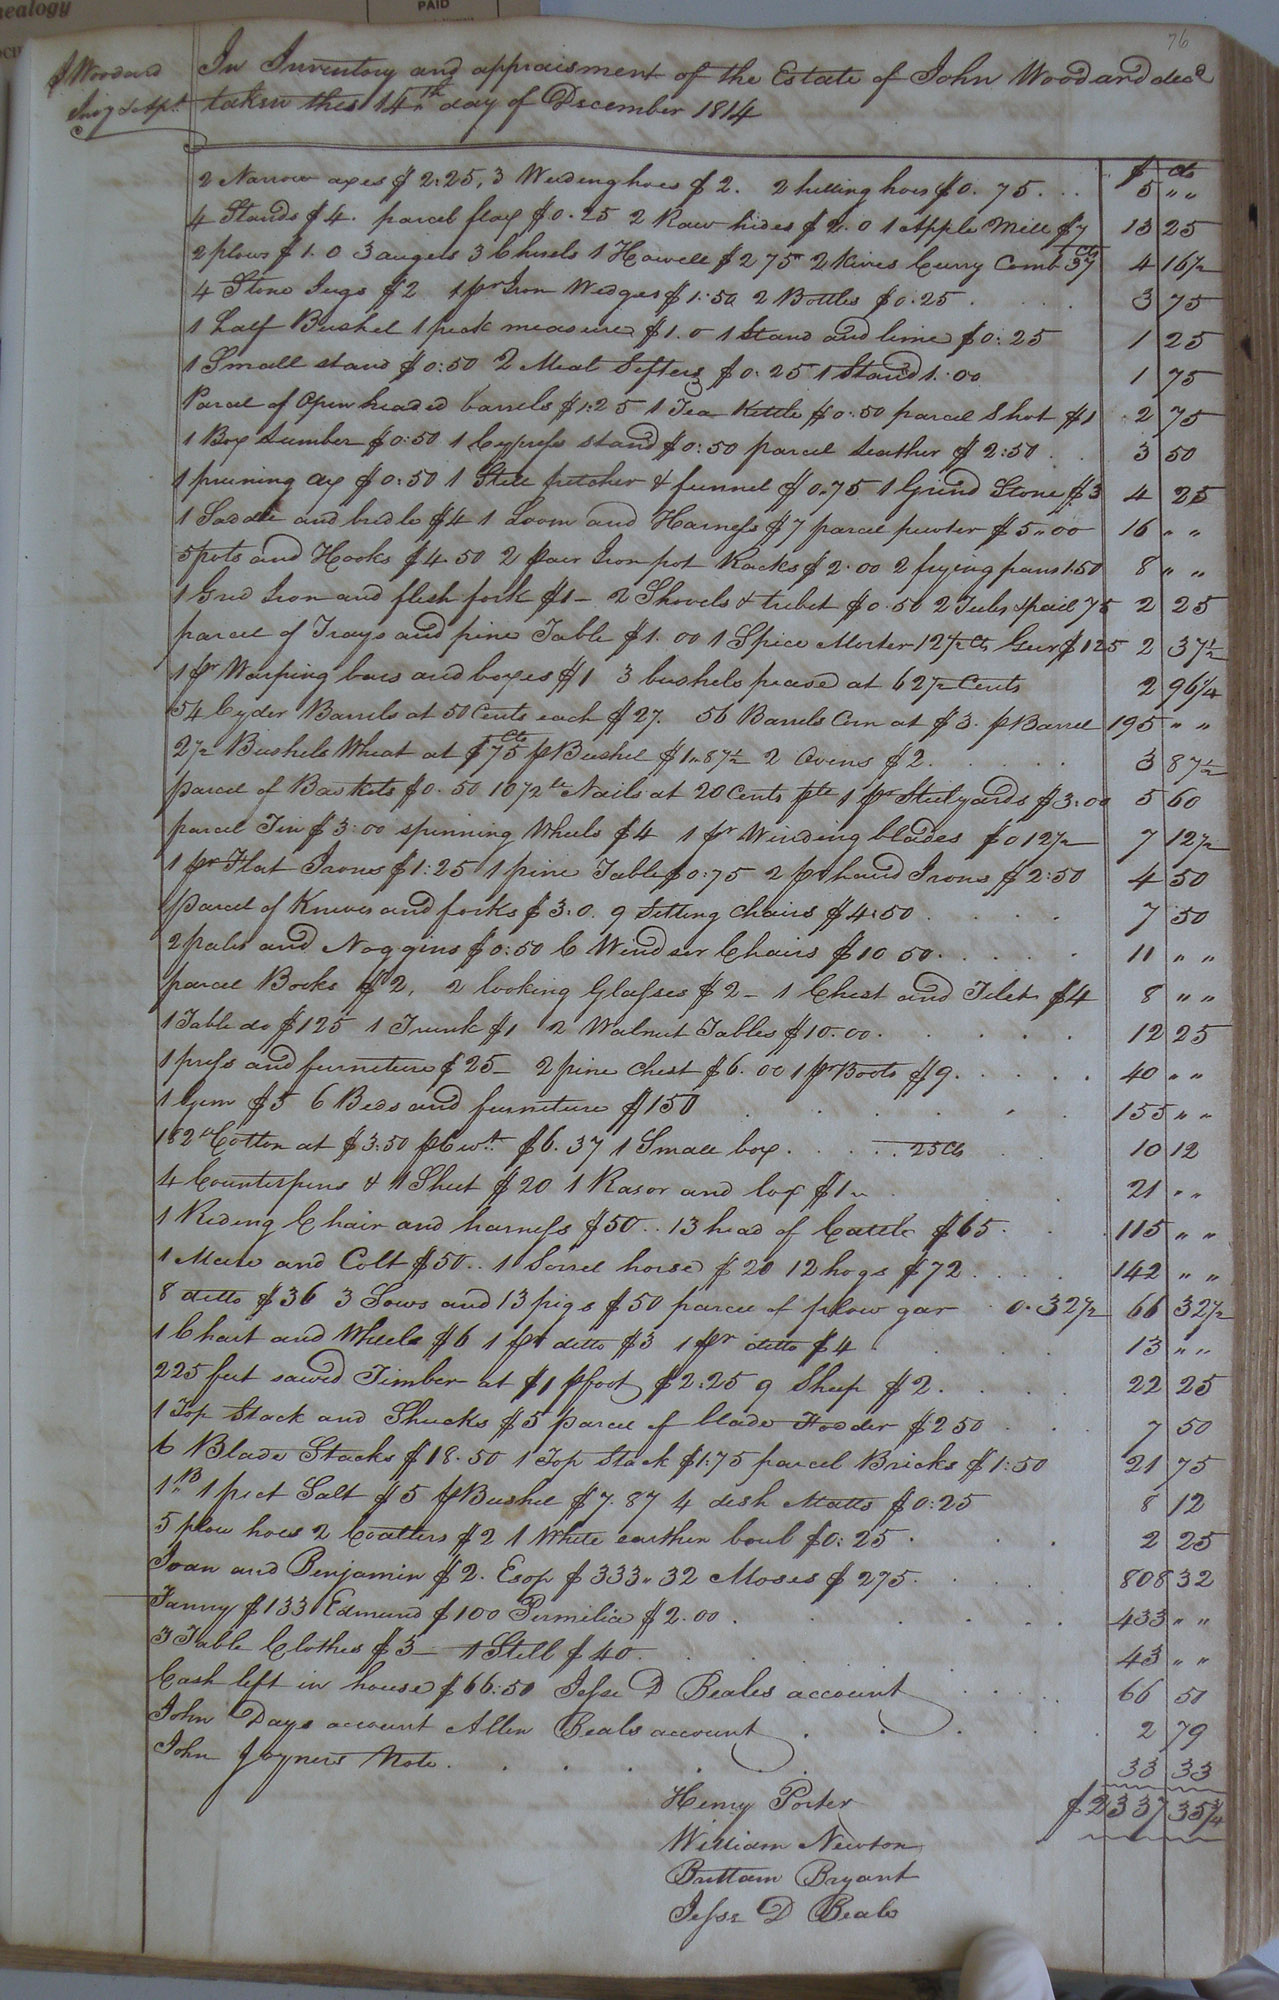 nealogy
PAID
76
J Woodard
In Inventory and appraisment of the Estate of John Woodard decd
taken this 14th day of December 1814
$ cts
2 Narrow axes $2:25, 3 Weeding hoes $2. 2 hilling hoes $0.75 . . 5 " "
4 Stands $4. parcel flax $0.25 2 Raw hides $2.0 1 Apple Mill $7 13 25
2 plows $1.0 3 augers 3 Chisels 1 Howell $2 75 2 Curry Comb 37 cts 4 16½
4 Stone Jugs $2 1 pr Iron Wedges $1:50 2 Bottles $0:25 . . 3 75
1 half Bushel 1 peck measure $1.0 1 Stand and lime $0:25 1 25
1 Small stand $0:50 2 Meal Sifters $0.25 1 Stand 1:00 1 75
Parcel of Open headed barrels $1:25 1 Tea Kettle $0:50 parcel Shot $1 2 75
1 Box Lumber $0:50 1 Cypress stand $0:50 parcel Leather $2:50 . . 3 50
1 pruning ax $0:50 1 Still pitcher & funnel $0.75 1 Grind Stone $3 4 25
1 Saddle and bridle $4 1 Loom and Harness $7 parcel pewter $5.00 16 " "
5 pots and Hooks $4.50 2 pair Iron pot Racks $2.00 2 frying pans 1.50 8 " "
1 Grid Iron and flesh fork $1 - 2 Shovels & trebet $0.50 2 Tubs & pail 75 2 25
parcel of Trays and pine Table $1.00 1 Spice Morter 12½ cts $1 25 2 37½
1 pr Warping bars and boxes $1 3 bushels pease at 62½ Cents 2 96¼
54 Cyder Barrels at 50 Cents each $27. 56 Barrels Corn at $3. p Barrel 195 " "
2½ Bushels Wheat at $75 cts p Bushel $1.87½ 2 Ovens $2. . . 3 87½
parcel of Baskets $0.50 10½ lb Nails at 20 Cents p lb 1 pr Steelyards $3:00 5 60
parcel Tin $3:00 spinning Wheels $4 1 pr Winding blades $0 12½ 7 12½
1 pr Flat Irons $1:25 1 pine Table $0:75 2 pr hand Irons $2:50 4 50
parcel of Knives and forks $3:0. 9 Setting Chairs $4:50 . . 7 50
2 pales and Noggins $0:50 6 Windser Chairs $10 50 . . 11 " "
parcel Books $2, 2 looking Glasses $2 - 1 Chest and $4 8 " "
1 Table do $1 25 1 Trunk $1 2 Walnut Tables $10.00 . . 12 25
1 press and furniture $25 - 2 pine Chest $6.00 1 pr Boots $9 . . 40 " "
1 Gun $5 6 Beds and furniture $150 . . 155 " "
182 lb Cotton at $3:50 p Cwt $6.37 1 Small box . . 25 Cts 10 12
4 Counterpins & 1 Sheet $20 1 Rasor and box $1 21 " "
1 Rideing Chair and harness $50 . . 13 head of Cattle $65 . . 115 " "
1 Mare and Colt $50 . . 1 Sorrel horse $20 12 hogs $72 . . 142 " "
8 ditto $36 3 Sows and 13 pigs $50 parcel of plow gar 0.32½ 66 32½
1 Chart and Wheels $6 1 pr ditto $3 1 pr ditto $4 . . 13 " "
225 feet sawed Timber at $1 p foot $2:25 9 Sheep $2 . . 22 25
1 Top Stack and Shucks $5 parcel of blade Fodder $2 50 . . 7 50
6 Blade Stacks $18.50 1 Top Stack $1:75 parcel Bricks $1:50 21 75
1 B 1 pect Salt $5 p Bushel $7.87 4 dish Matts $0:25 8 12
5 plow hoes 2 Coalters $2 1 White earthen boul $0:25 . . 2 25
Joan and Benjamin $2. Esop $333.32 Moses $275 . . 808 32
Fanny $133 Edmund $100 Permilia $2.00 . . 433 " "
3 Table Clothes $3 - 1 Still $40 . . 43 " "
Cash left in house $66:50 Jesse D Beales account . . 66 50
John Days account Allen Beals account . . 2 79
John Joyners Note . . 33 33
$2337 35¾
Henry Porter
William Newton
Brittain Bryant
Jesse D Beals